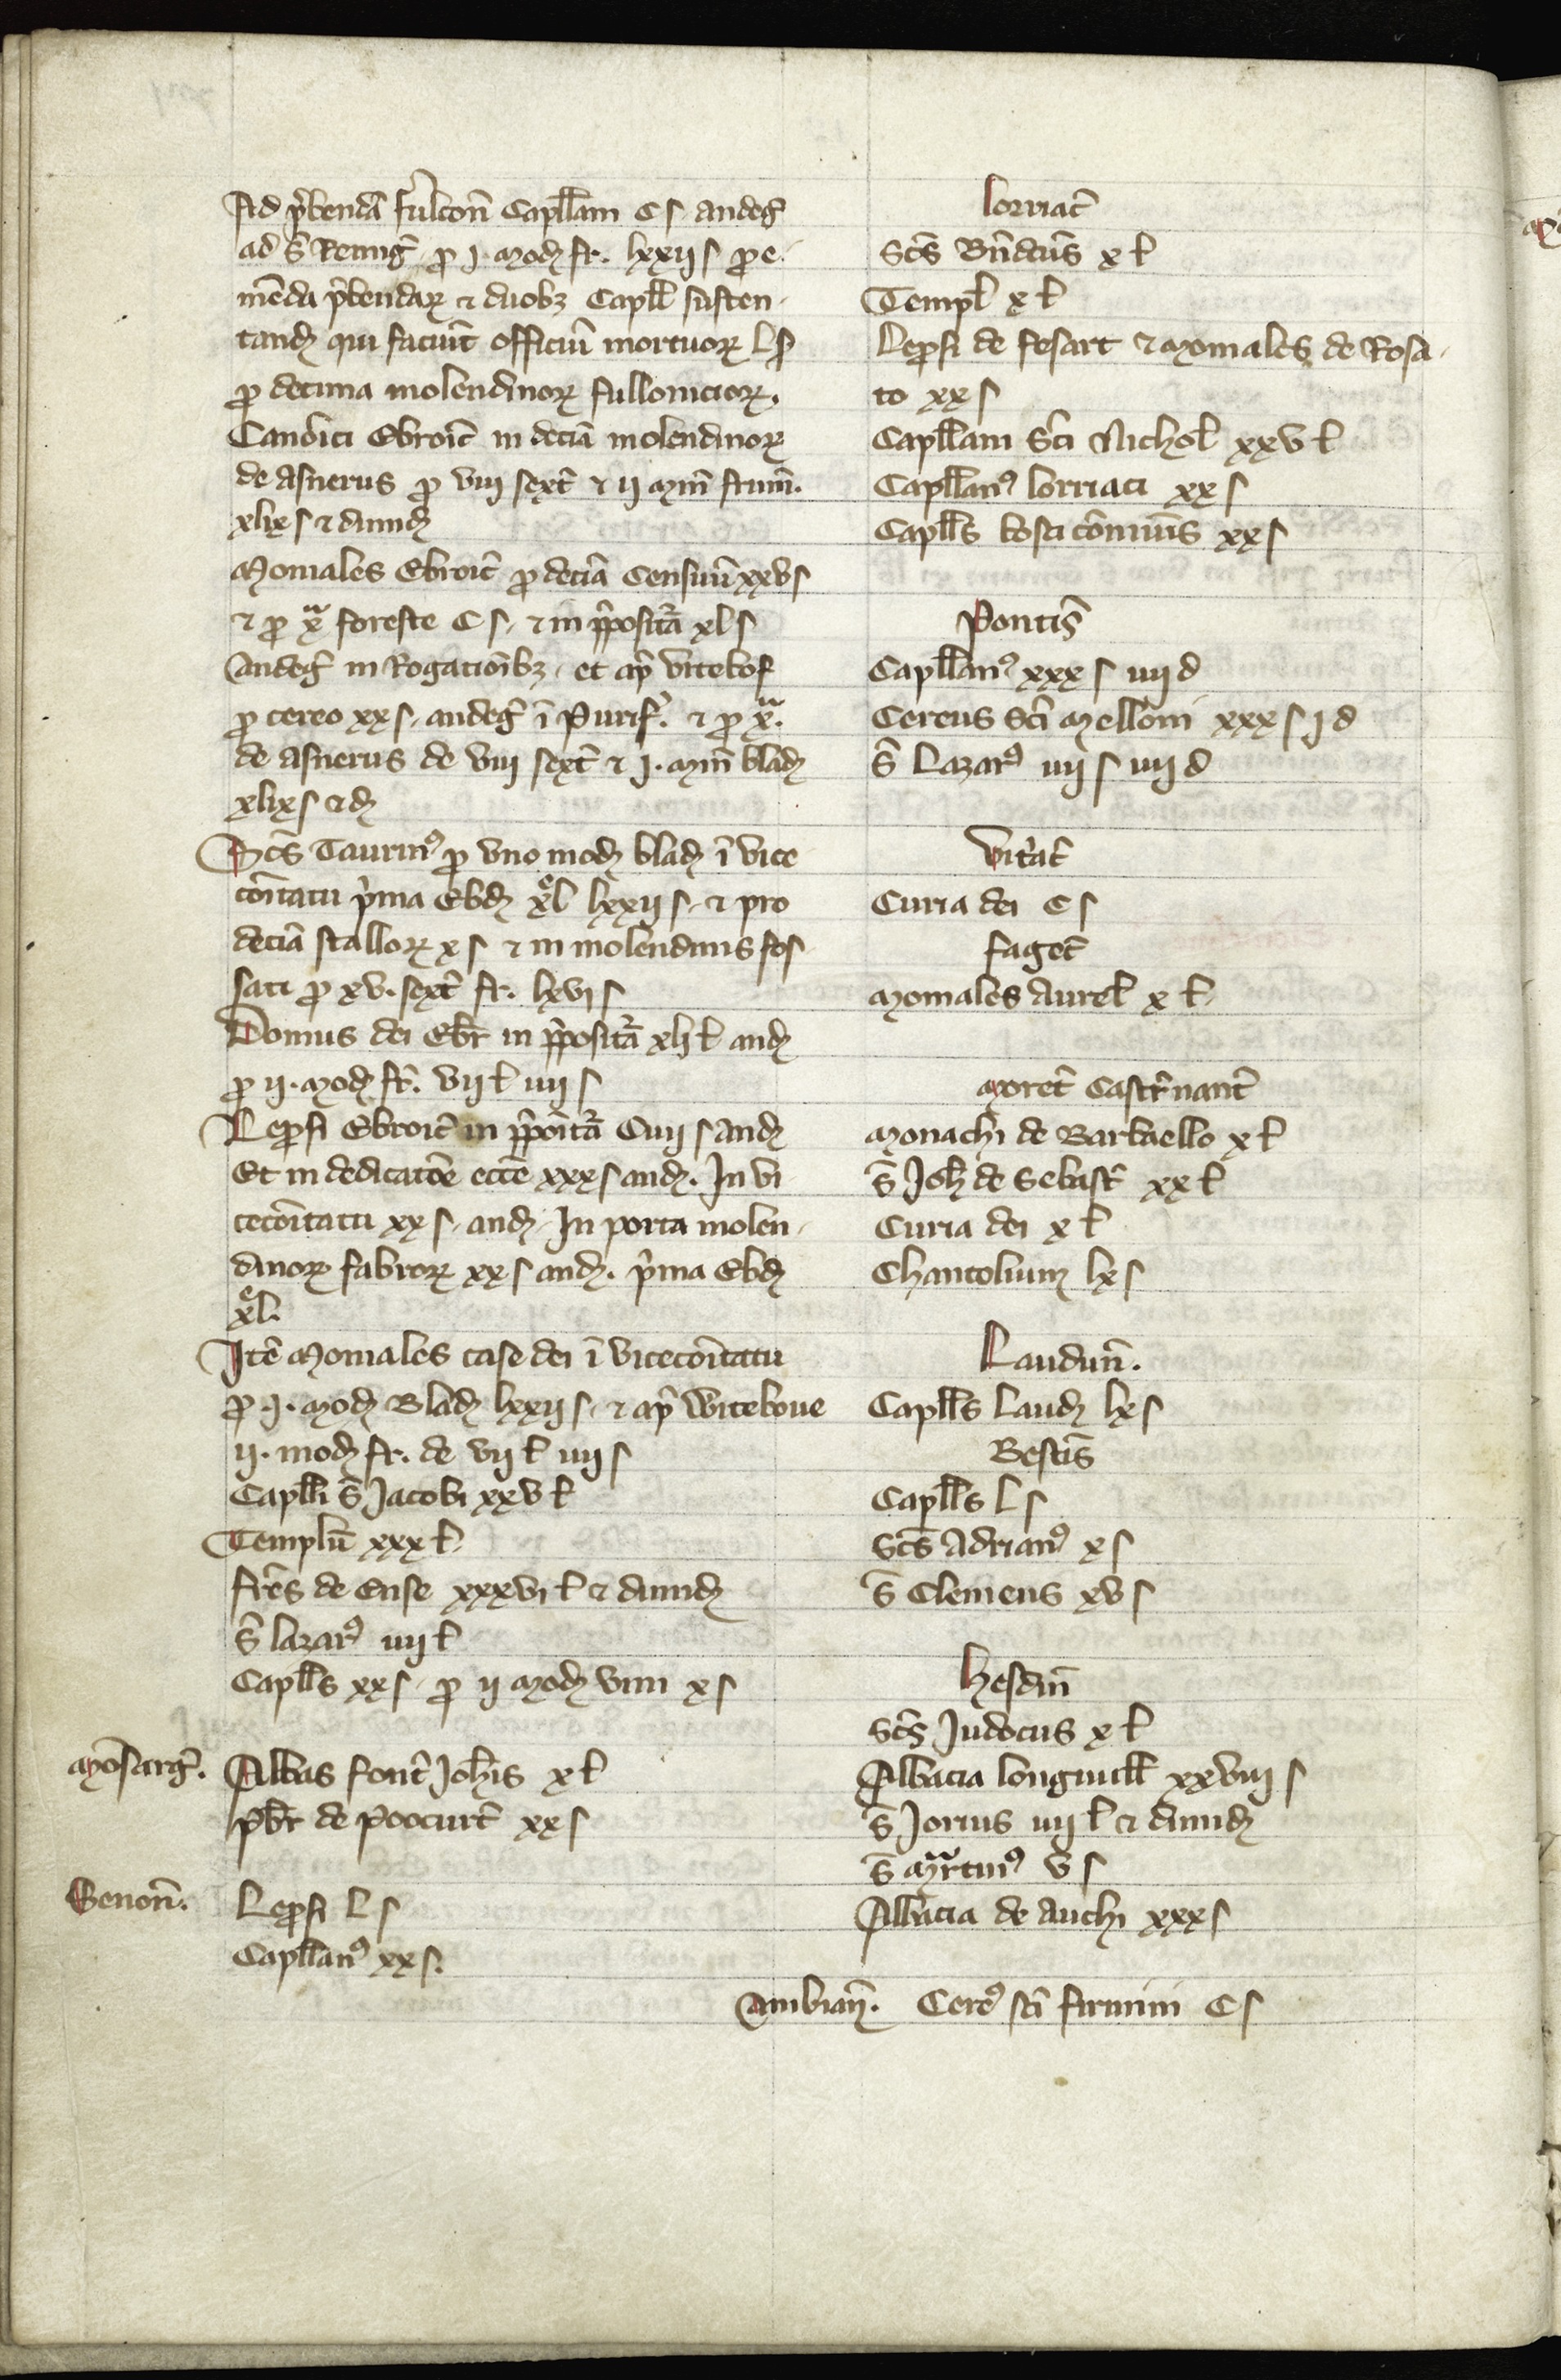 Ad p̄bendā fulcoñ Capll̄am C s andeḡ
ad S̄ Remiḡ p̱ j. modꝫ fr. lxxij s p̱ e
mēda p̄bendaꝝ ⁊ duobꝫ Capll̄ susten
tandꝫ qui faciūt officiū mortuoꝝ L s p̱
p̱ decima molendinoꝝ fullonicioꝝ.
Canōici Ebroic̄ in deciā molendinoꝝ
de asnerus p̱ viij sext̄ ⁊ ij mīn frum̄.
xlix s ⁊ dimidꝫ
Moniales Ebroic̄ p̱ deciā Censuū xxv s
⁊ p̱ xᵃ foreste C s, ⁊ in p̄positᵃ̄ xl s
andeḡ in Rogacionibꝫ, et ap̄ vitebof
p̱ cereo xx s, andeḡ ī Purif. ⁊ p̱ xᵃ.
de asnerus de viij sext̄ ⁊ j. mīn bladꝫ
xlix s ⁊ dꝫ
Sc̄s Taurinꝰ p̱ vno modꝫ bladꝫ ī vice
cōitatu p̄ma Ebdꝫ xᵉl lxxij s, ⁊ pro
deciā stalloꝝ x s ⁊ in molendinis fos
sati p̱ xv. sext̄ fr. lxvi s
Domus dei Ebr̄ in p̄positᵃ̄ xlij l̄ andꝫ
p̱ ij. modꝫ fr̄. vij l̄ iiij s
Lep̱si Ebroic̄ in p̄poitᵃ̄ Ciiij s andꝫ
Et in dedicatōe ecc̄e xxx s andꝫ. In vi
cecōitatu xx s, andꝫ. In porta molen
dinoꝝ fabroꝝ xx s andꝫ. p̄ma Ebdꝫ
xᵉl.
Itē Moniales case dei ī vicecōitatu
p̱ j. modꝫ Bladꝫ lxxij s, ⁊ ap̄ Witeboue
ij. modꝫ fr. de vij l̄ iiij s
Capll̄i S̄ Jacobi xxv l̄
Templū xxx l̄
fr̄es de Ense xxxvi l̄ ⁊ dimidꝫ
S̄ lazarꝰ iiij l̄
Capll̄s xx s, p̱ ij modꝫ vini x s
Mōsarḡ. Abbas font̄ Joh̄is x l̄
Pb̄r de Poocurt̄ xx s
Senoñ. Lep̱si L s
Capll̄anꝰ xx s.
Lorriac̄
Sc̄s Bn̄dcūs x l̄
Templ̄ x l̄
Lep̱si de fesart ⁊ Moniales de Rosa
to xx s
Capll̄am Sc̄i Nichol̄ xxv l̄
Capll̄anꝰ lorriaci xx s
Capll̄s bosci cōmuīs xx s
Pontis̄
Capll̄anꝰ xxx s iiij d
Cereus Sc̄i Melloni xxx s j d
S̄ Lazarꝰ iiij s iiij d
Vit̄ac̄
Curia dei C s
faget̄
Moniales Aurel̄ x l̄
Moret̄ Castr̄nant̄
Monachi de Barbaello x l̄
S̄ Joh̄ de Sebast̄ xx l̄
Curia dei x l̄
Chantolium lx s
Laudun̄.
Capll̄s Laudꝫ lx s
Bestis̄
Capll̄s L s
Sc̄s Adrianꝰ x s
S̄ Clemens xv s
Hesdin̄
Sc̄s Judocus x l̄
Abbacia longuill̄ xxviij s
S̄ Jorius iiij l̄ ⁊ dimidꝫ
S̄ Mᵃrtinꝰ v s
Abbacia de Auchi xxx s
Ambian̄. Cereꝰ sc̄i firmini C s